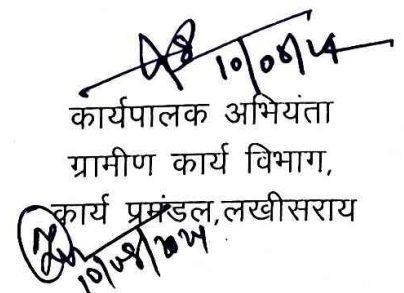 10/08/24
कार्यपालक अभियंता
ग्रामीण कार्य विभाग,
कार्य प्रमंडल,लखीसराय